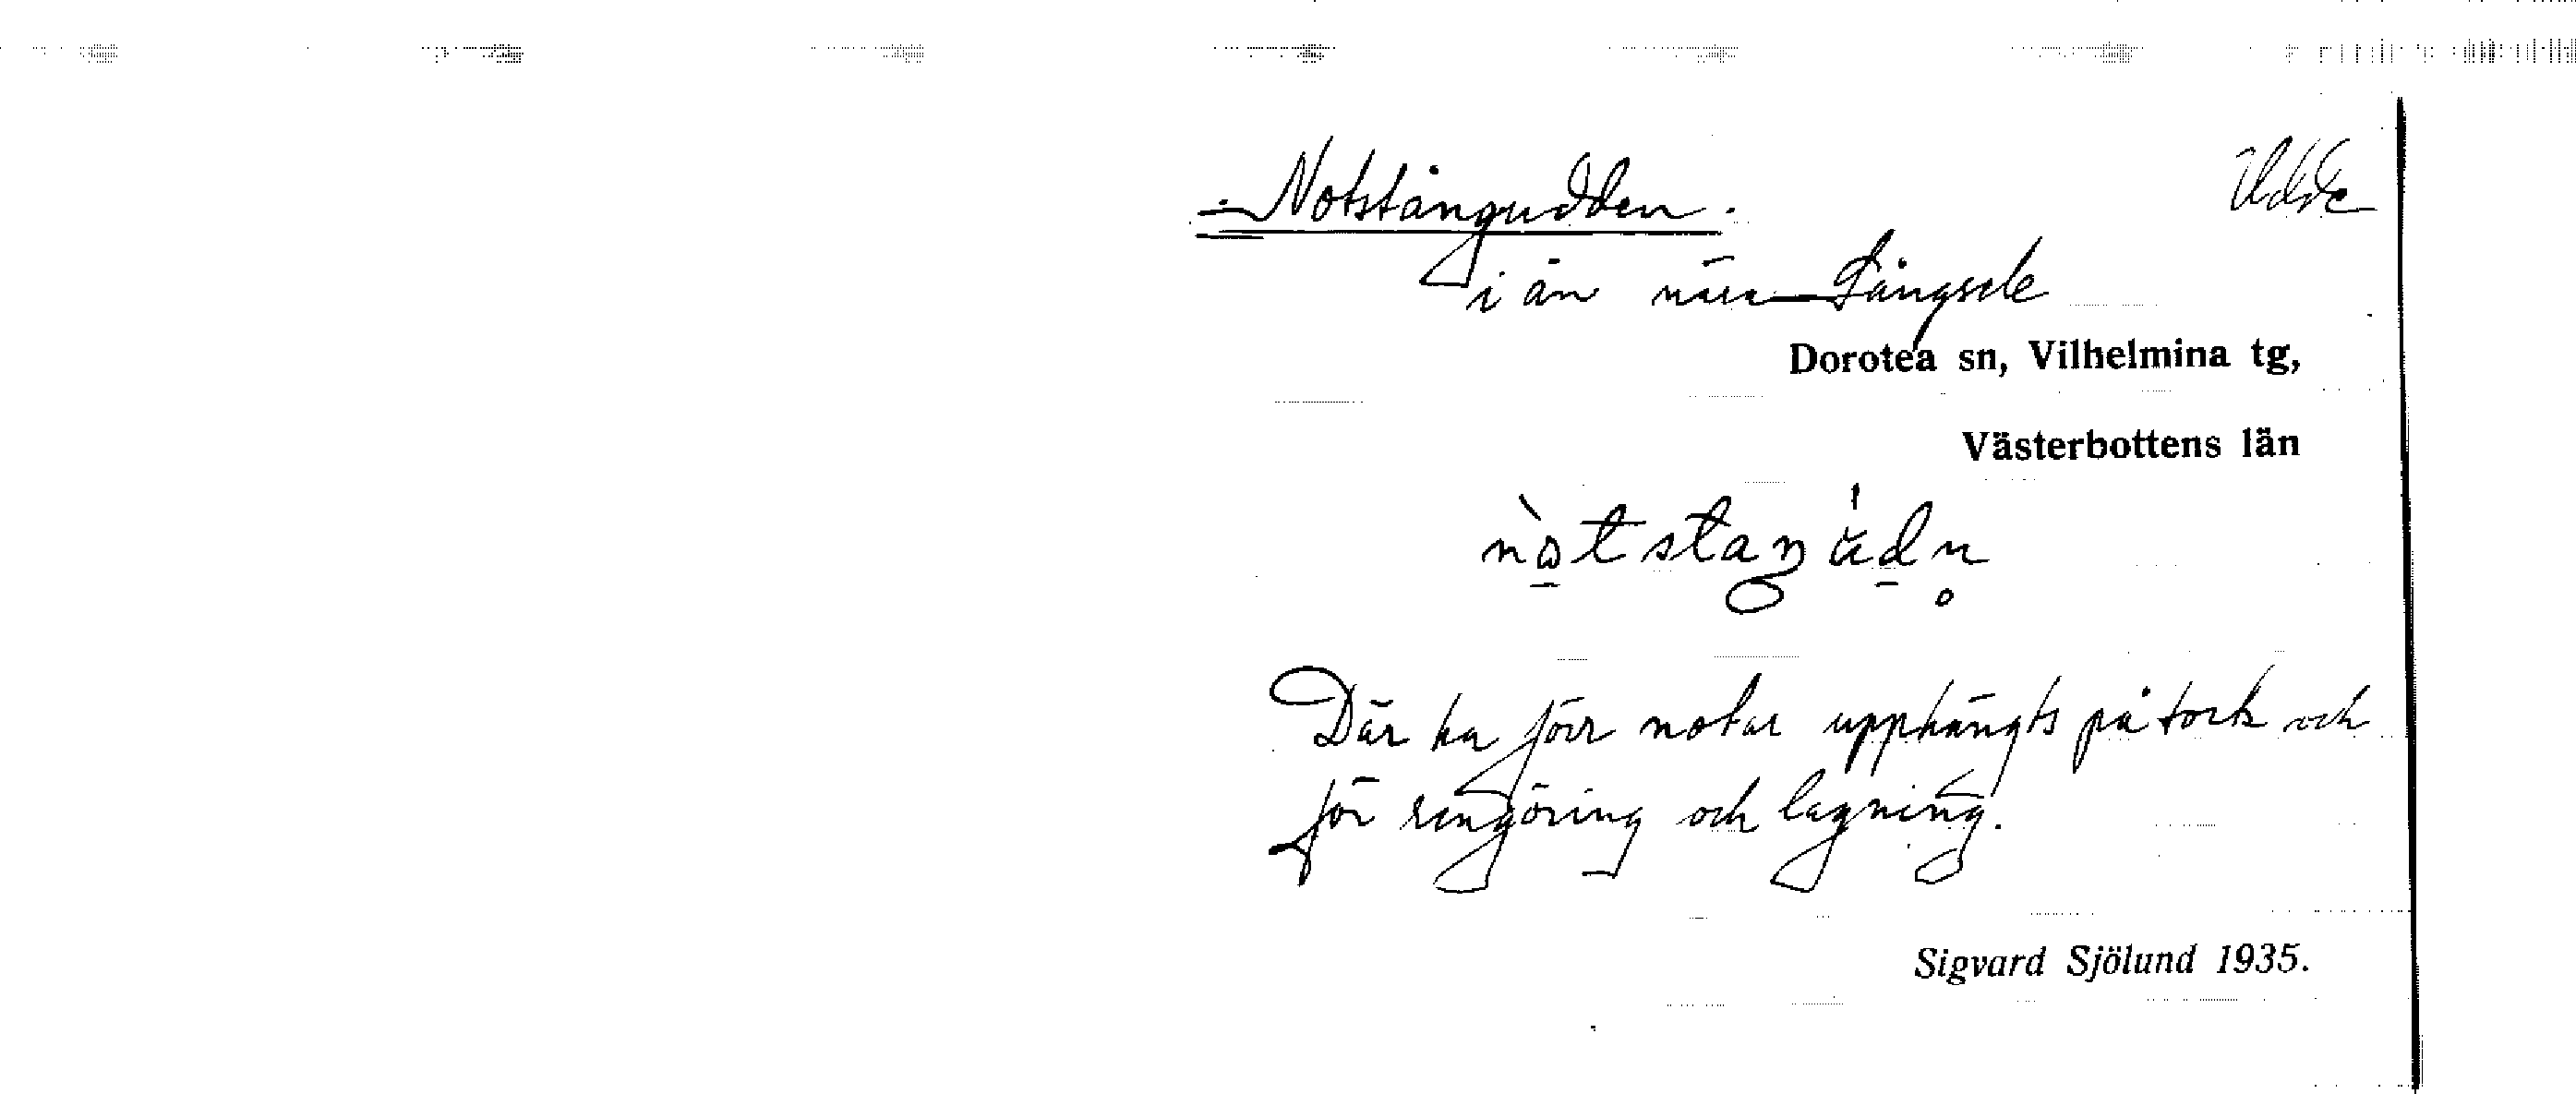 Notstångudden. Udde
i ån nära Långsele
Dorotea sn, Vilhelmina tg,
Västerbottens län
Där ha förr notar upphängts på tork och
för rengöring och lagning.
Sigvard Sjölund 1935.